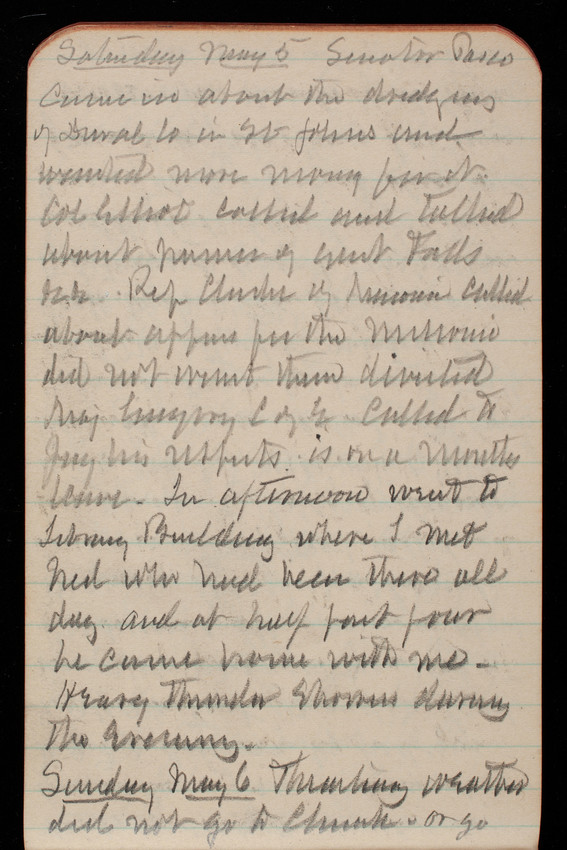 Saturday May 5 Senator Pasco
came in about the dredging
of Duval Co in St Johns and
wanted more money for it.
Col Elliot called and talked
about power of Great Falls
&c &c. Rep Clark of Missouri called
about apprn for the Missouri
did not want them divided
Maj Gregory C of E. Called to
pay his respects. is on a months
leave. In afternoon went to
Library Building where I met
Ned who had been there all
day and at half past four
he came home with me.
Heavy thunder showers during
the Evening.
Sunday May 6 Threatening weather
did not go to Church. or go